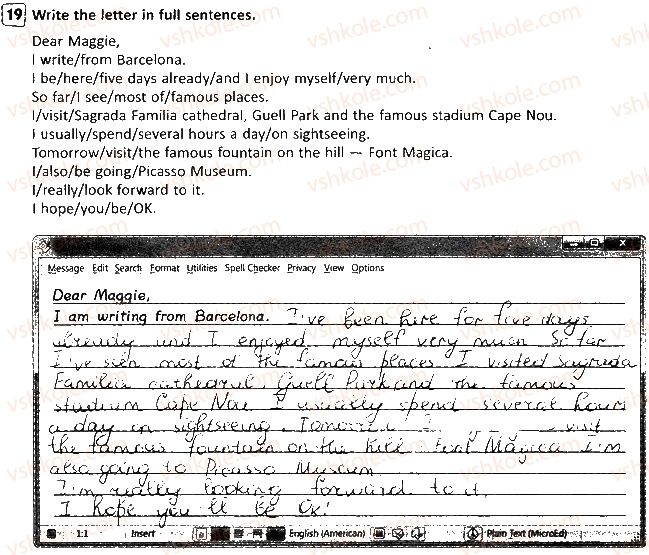 19 Write the letter in full sentences.
Dear Maggie,
I write/from Barcelona.
I be/here/five days already/and I enjoy myself/very much.
So far/I see/most of/famous places.
I/visit/Sagrada Familia cathedral, Guell Park and the famous stadium Cape Nou.
I usually/spend/several hours a day/on sightseeing.
Tomorrow/visit/the famous fountain on the hill — Font Magica.
I/also/be going/Picasso Museum.
I/really/look forward to it.
I hope/you/be/OK.
Message Edit Search Format Utilities Spell Checker Privacy View Options
Dear Maggie,
I am writing from Barcelona. I've been here for five days
already and I enjoyed myself very much So far
I've seen most of the famous places I visited Sagrada
Familia cathedral Guell Park and the famous
stadium Cape Nou I usually spend several hours
a day on sightseeing. Tomorrow I visit
the famous fountain on the hill Font Magica I'm
also going to Picasso Museum
I'm really looking forward to it.
I hope you'll be OK!
1:1 Insert English (American) Plain Text (MicroEd)
vshkole.com